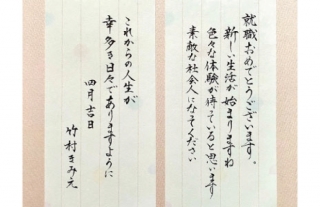 就職おめでとうございます。
新しい生活が始まりますね
色々な体験が待っていると思います
素敵な社会人になってください
これからの人生が
幸多き日々でありますように
四月吉日
竹村きみえ